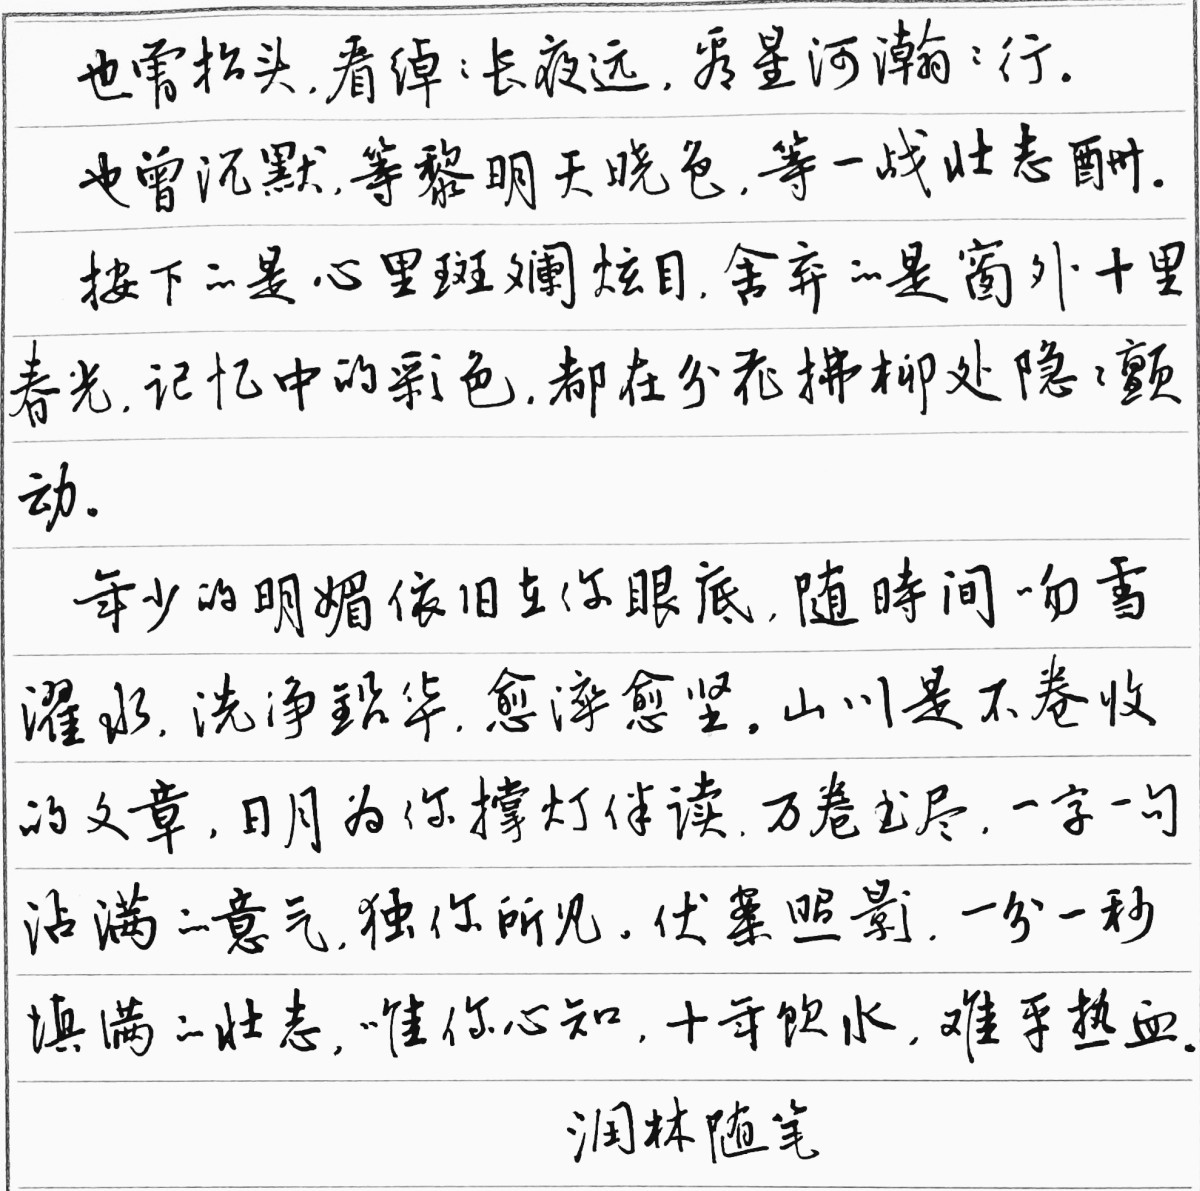 也曾抬头,看绰:长夜远,看星河瀚:行.
也曾沉默,等黎明天晓色,等一战壮志酬.
按下的是心里斑斓炫目,舍弃的是窗外十里
春光,记忆中的彩色,都在分花拂柳处隐:颤
动.
年少的明媚依旧在你眼底,随時间吻雪
濯冰,洗净铅华,愈淬愈坚。山川是不卷收
的文章,日月为你撑灯伴读,万卷书尽,一字一句
沾满的意气,独你所见。伏案照影,一分一秒
填满的壮志,唯你心知,十年饮冰,难平热血.
润林随笔